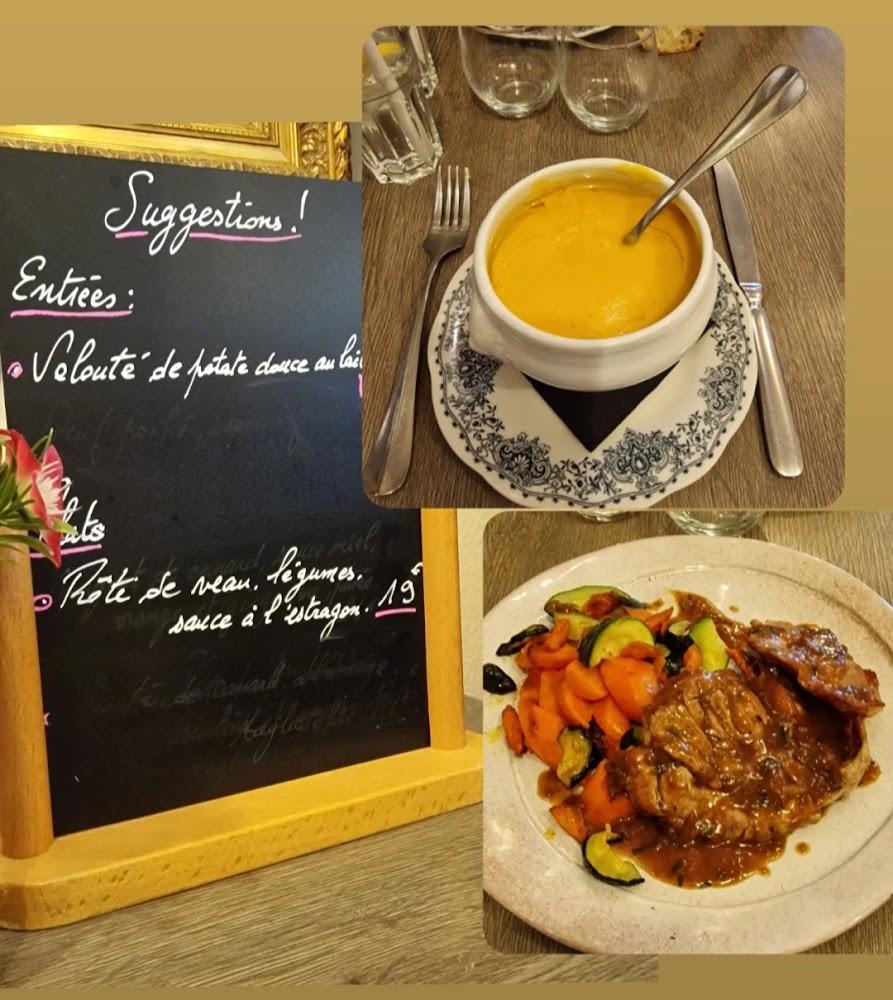 Suggestions!
Entrées:
Velouté de patate douce au
Plats
Rôti de veau, légumes,
sauce à l'estragon. 19€